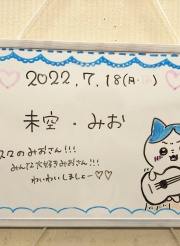 2022.7.18(月・)
未空・みお
久々のみおさん!!!
みんな大好きみおさん!!!
わいわいしましょー♡♡